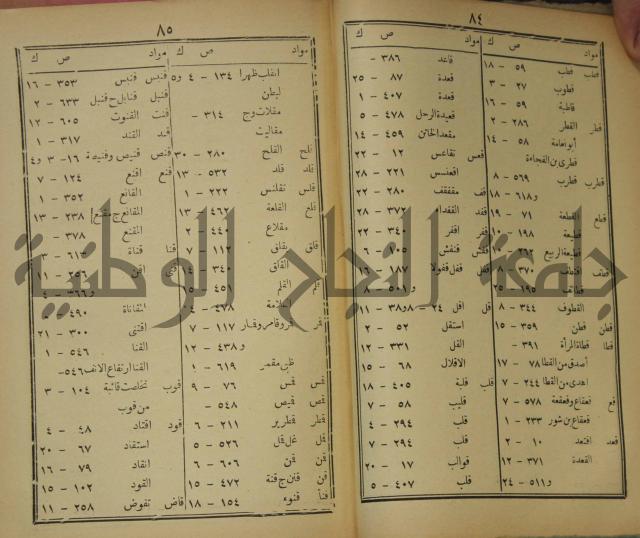 ٨٤
مواد ص ك مواد ص ك
قطب قطب ٥٩ - ١٨
قطوب ٢٧ - ٣
قاطبة ٥٩ - ١٦
قطر القطر ٢٨٦ - ٢
أبو نعامة ٥٨ - ١٤
قطري من الفجاءة
قطرب قطرب ٥٦٩ - ٨
و٦١٨ - ١٨
قطع القطعة ٧١ - ١٩
قطيعة ١٩٨ - ١٠
قطيعة الربيع
قطف اقتطف ٣٧٠ - ٨
القطوف ٣٤٤ - ٨
قطن قطن ٣٥٩ - ١٥
قطا قطاة المرأة ٣٩١ -
أصدق من القطا ٧٨ - ١٧
اهدى من القطا ٢٤٤ - ٧
قع قعقاع وقعقعة ٥٧٨ - ٧
قعقاع بن شور ٢٣٣ - ١
قعد اقتعد ١٠ - ٢
القعدة ٣٧١ - ١٢
و٥١١ - ٢٤
قاعد ٣٨٦ -
قعدة ٨٧ - ٢٥
قعدة ٤٠٧ - ١
قعيدة الرحل ٤٧٨ - ٥
مقعد الخاتن ٤٥٩ - ١٤
قعس تقاعس ١٢ - ٢٢
اقعنسس ٢٢١ - ٢٨
قف مقفقف ٢٨٠ - ٢٢
قفد القفداء ٣٧٢ - ٢٨
قفر اقفر ٣٤٠ - ٢٢
قفش قنفش ٦٠٥ - ٦
قفل قفل قفولا ١٨٧ - ١٦
و٥٠١ - ٨
قل اقل ٢٤ - ٨ و٣٨ - ١١
استقل ٥٢ - ٢
القل ٣٣١ - ١٢
الاقلال ٦٨ - ١٥
قلب قلبة ٤٠٥ - ١٨
قليب ٥٨ - ٧
قلب ٢٩٤ - ٤
قلب ٢٩٤ - ٧
قوالب ١٧ - ٢٠
قلب ٤٠٧ - ٥
٨٥
مواد ص ك مواد ص ك
انقلب ظهرا ١٣٤ - ٤ و٥
لبطن
مقلات وج ٣١٤ -
مقاليت
قلح القلح ٢٨٠ - ٣٠
قلد قلد ٥٣٢ - ١٣
قلس تقلنس ٢٢٢ - ١
قلع القلعة ٤٦٧ - ١٣
مقلاع ٤٤٠ - ٢
قلق يقلق ١١٢ - ٧
القاق ٣٤٠ - ١٤
القلم ٤٥١ - ١٥
القلامة ٤٧٨ - ٤
قمر وقامر وقمار ١١٧ - ٧
و٤٣٨ - ١٢
ظبي مقمر ٦١٩ - ١
قمس قمس ٧٦ - ٩
قمص قميص ٥٤٨ -
قمطر قمطرير ٢١١ - ٦
قمل غل قمل ٥٢٦ - ٥
قمن قمن ٦٠٦ - ٦
قن قنن ج قنة ٤٧٢ - ١٥
قنأ قنوء ١٥٤ - ١٨
قنبس قنبس ٣٥٣ - ١٦
قنبل قنابل ج قنبل ٦٣٣ - ٢
قنت القنوت ٦٠٥ - ١٢
قند القند ٣١٧ - ١
قنص قنيص وقنيصة ١٦ - ٣ و٤
قنع اقنع ١٢٤ - ٧
القانع ٣٥٢ - ١
المقانع ج مقنع ٢٣٨ - ١٣
المقنع ٣٧٨ -
قنا قناة ٦١٣ - ٣
اقنى ٢٥٦ - ١١
و٣٦٦ - ٤
المقاناة ٤٩٠
اقتنى ٣٠٠ - ٢١
القنا ٥٤٦ - ١
القنا ارتفاع الانف ٥٤٦-
قوب تخلصت قائبة ١٠٤ - ٣
من قوب
قود اقتاد ٤٨ - ٤
استقاد ٦٧ - ٢٠
انقاد ٧٩ - ١٦
القود ١٠٢ - ١٥
قاض تقوض ٢٥٨ - ١١
جامعة النجاح الوطنية